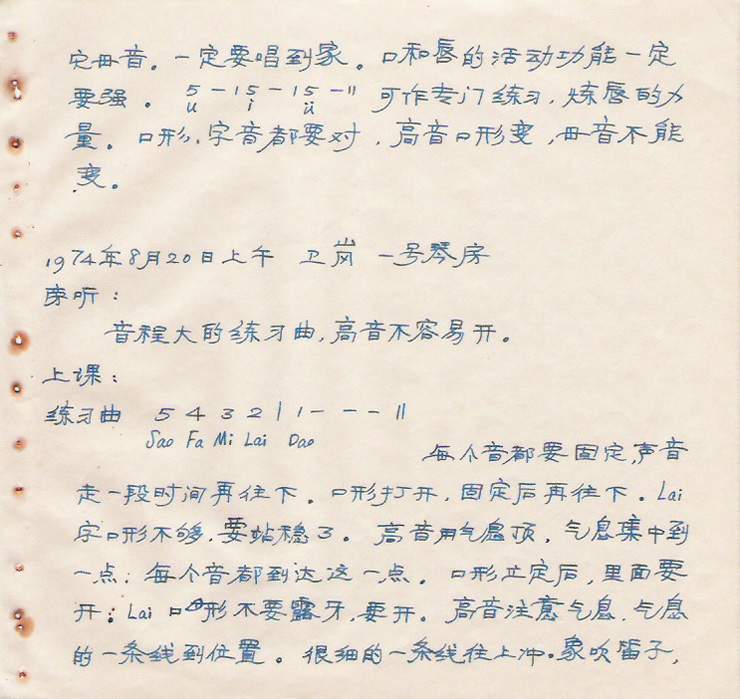 完毋音。一定要唱到家。口和唇的活动功能一定
要强。 5 — | 5 — | 5 — || 可作专门练习，炼唇的力
u i ü
量。口形，字音都要对，高音口形变，毋音不能
变。
1974年8月20日上午 卫岗 一号琴房
旁听：
音程大的练习曲，高音不容易开。
上课：
练习曲 5 4 3 2 | 1 — — — ||
Sao Fa Mi Lai Dao
每个音都要固定，声音
走一段时间再往下。口形打开，固定后再往下。Lai
字口形不够，要站稳了。高音用气息顶，气息集中到
一点；每个音都到达这一点。口形立定后，里面要
开；Lai 口形不要露牙，要开。高音注意气息，气息
的一条线到位置。很细的一条线往上冲。象吹笛子，